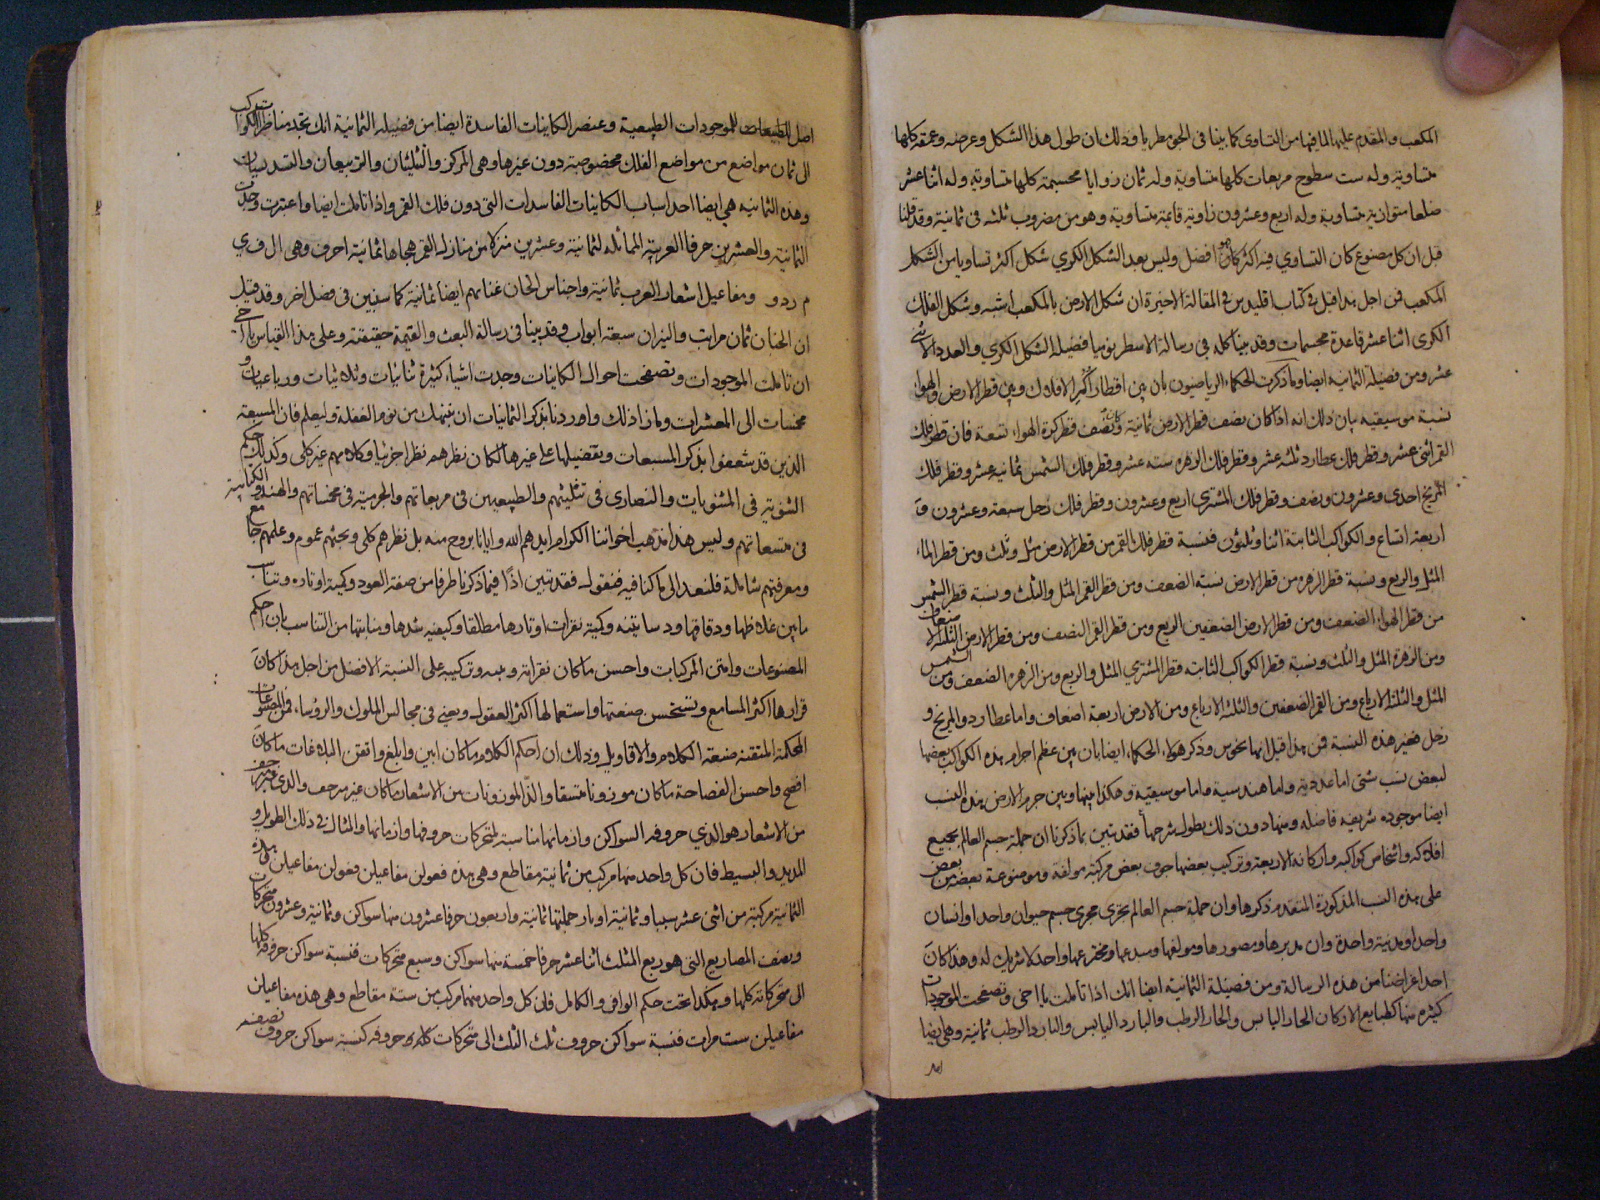 المكعب والمقدم عليها لما فيها من التساوى كما بينا فى الجومطريا وذلك ان طول هذا الشكل وعرضه وعمقه كلها
متساوية وله ست سطوح مربعات كلها متساوية وله ثمان زوايا مجسمة كلها متساوية وله اثنا عشر
ضلعا متوازية متساوية وله اربع وعشرون زاوية قايمة متساوية وهو من مضروب ثلثه فى ثمانية وقد قلنا
قبل ان كل مصنوع كان التساوي فيه اكثر كان افضل وليس بعد الشكل الكري شكل اكثر تساويا من الشكل
المكعب فمن اجل هذا قيل فى كتاب اقليدس فى المقالة الاخيرة ان شكل الارض بالمكعب اشبه وشكل الفلك
الكرى اثنا عشر قاعدة مخمسات وقد بينا كله فى رسالة الاسطرنوميا فضيلة الشكل الكري والعدد الاثنى
عشر ومن فضيلة الثمانية ايضا وما ذكرت الحكماء الرياضيون بان بين اقطار اكر الافلاك وبين قطر الارض والهواء
نسبة موسيقيه بيان ذلك انه اذا كان نصف قطر الارض ثمانية ونصف قطر كرة الهواء تسعة فان قطر فلك
القمر اثنى عشر وقطر فلك عطارد ثلثه عشر وقطر فلك الزهره سته عشر وقطر فلك الشمس ثمانيه عشر وقطر فلك
المريخ احدى وعشرون ونصف وقطر فلك المشترى اربع وعشرون وقطر فلك زحل سبعة وعشرون و
اربعة اتساع والكواكب الثابتة اثنا وثلثون فنسبة قطر فلك القمر من قطر الارض مثل وثلث ومن قطر الماء
المثل والربع ونسبة قطر الزهره من قطر الارض نسبة الضعف ومن قطر القمر المثل والثلث ونسبة قطر الشمس
من قطر الهواء الضعف ومن قطر الارض الضعفين الربع ومن قطر القمر النصف ومن قطر الارض الثلثة الا
ومن الزهرة المثل والثلث ونسبة قطر الكواكب الثابتة قطر المشتري المثل والربع ومن الزهره الضعف ومن الشمس
المثل والثلثة الارباع ومن القمر الضعفين والثلثة الارباع ومن الارض اربعة اضعاف واما عطارد والمريخ و
زحل فغير هذه النسبة فمن هذا قيل انها نحوس وذكر هولاء الحكماء ايضا بان بين عظم اجرام هذه الكواكب بعضها
لبعض نسب شتى اما عددية واما هندسية واما موسيقية وهكذا بينها وبين جرم الارض هذه النسب
ايضا موجوده شريفه فاضله ومنها دون ذلك يطول شرحها فقد تبين بما ذكرنا ان جملة جسم العالم بجميع
افلاكه واشخاص كواكبه واركانه الاربعة وتركيب بعضها جوف بعض مركبة مولفة وموضوعة بعض من بعض
على هذه النسب المذكورة المتقدم ذكرها وان جملة جسم العالم يجرى مجرى جسم حيوان واحد او انسان
واحد او مدينة واحدة وان مدبرها ومصورها ومولفها ومبدعها ومخترعها واحد لا شريك له وهذا كان
احد اغراضنا من هذه الرسالة ومن فضيلة الثمانية ايضا انك اذا تاملت يا اخى وتصفحت الموجودات
كثيره منها كطبايع الاركان الحار اليابس والحار الرطب والبارد اليابس والبارد الرطب ثمانية وهى ايضا
اصل
اصل الطبيعات للموجودات الطبيعية وعنصر الكاينات الفاسدة ايضا من فضيلة الثمانية انك تجد مناظرات الكواكب
الى ثمان مواضع من مواضع الفلك مخصوصة دون غيرها وهى المركز والثلثان والتربيعان والتسديسان
وهذه الثمانيه هى ايضا احد اسباب الكاينات الفاسدات التى دون فلك القمر واذا تاملت ايضا واعتبرت وجدت
الثمانية والعشرين حرفا العربية المماثلة لثمانية وعشرين منزلا من منازل القمر هجاها ثمانية احرف وهى ال ف ي
م ر د و ومفاعيل اشعار العرب ثمانية واجناس الحان غنايهم ايضا ثمانية كما سنبين فى فصل اخر وقد قيل
ان الجنان ثمان مراتب والنيران سبعة ابواب وقد بينا فى رسالة البعث والقيمة حقيقته وعلى هذا القياس يا اخى
ان تاملت الموجودات وتصفحت احوال الكاينات وجدت اشياء كثيرة ثنائيات وثلاثيات ورباعيات و
مخمسات الى المعشرات وما زاد ذلك واوردنا بذكر الثمانيات ان ننبهك من نوم الغفلة وليعلم فان السبعة
الذين قد شغفوا بذكر المسبعات وبتفضيلها على غيرها كان نظرهم نظرا جزئيا وكلامهم غير كلى وكذلك حكم
الثنوية فى المثنويات والنصارى فى تثليثهم والطبيعيين فى مربعاتهم والخرمية فى مخمساتهم والهند والكيالية
فى متسعاتهم وليس هذا مذهب اخواننا الكرام ايدهم الله وايانا بروح منه بل نظرهم كلى وبحثهم عموم وعلمهم جامع
ومعرفتهم شاملة فلنعد الى ما كنا فيه فنقول فقد تبين اذا فيما ذكرنا طرفا من صفة العود وكمية اوتاره وتناسب
ما بين غلاظها ودقاقها ودساتينه وكمية نقرات اوتارها مطلقا وكيفيه شدها ومناسبتها من التناسب بان احكم
المصنوعات وامتن المركبات واحسن ما كان نقراته ونغمه وتركيبه على النسبة الافضل من اجل هذا كان
قرارها اكثر المسامع وتستحسن صنعتها واستعمالها اكثر العقول ويغنى فى مجالس الملوك والروساء فمن المصنوعات
المحكمة المتقنه صنعة الكلام والاقاويل وذلك ان احكم الكلام ما كان ابين وابلغ واتقن البلاغات ما كان
افصح واحسن الفصاحة ما كان موزونا متسقا والذ الموزونات من الاشعار ما كان غير مزحف والذى غير
من الاشعار هو الذي حروفه السواكن وازمانها مناسبة لمتحركات حروفها وازمانها والمثال فى ذلك الطويل و
المديد والبسيط فان كل واحد منها مركب من ثمانية مقاطع وهى هذه فعولن مفاعيلن فعولن مفاعيلن هذه
الثمانية مركبة من اثنى عشر سببا وثمانية اوتاد جملتها ثمانية واربعون حرفا عشرون منها سواكن وثمانية وعشرون متحركات
ونصف المصاريع التى هو ربع المثلث اثنا عشر حرفا خمسة منها سواكن وسبع متحركات فنسبة سواكن حروفه كلها
الى متحركاته كلها وهكذا تحت حكم الوافى والكامل فان كل واحد منهما مركب من ستة مقاطع وهى هذه مفاعيلن
مفاعيلن ست مرات فنسبة سواكن حروف ثلث الثلث الى متحركات كله حروفه كنسبة سواكن حروف نصفه